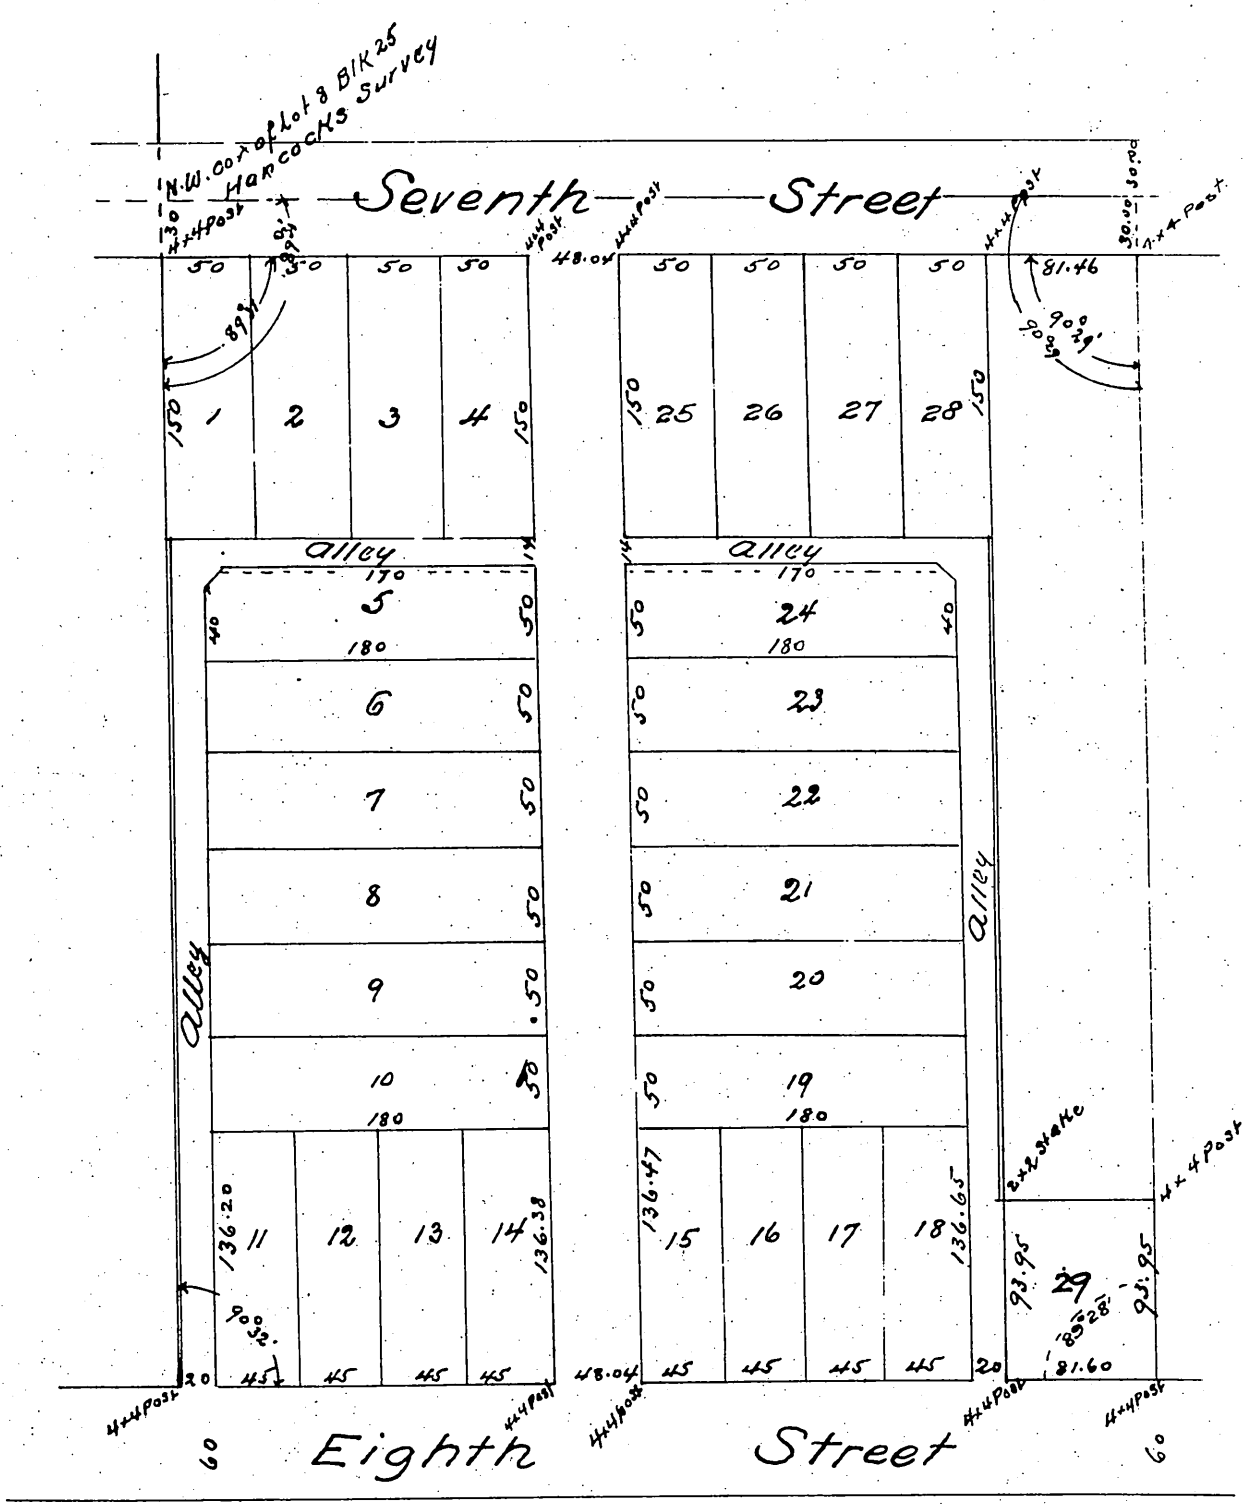 N.W. cor of Lot 8 Blk 25
Hancocks Survey
Seventh Street
30
4x4 Post
4x4 Post
4x4 Post
4x4 Post
30.00 30.00
4x4 Post
50 50 50 50 48.04 50 50 50 50 81.46
89°31'
90°29'
90°29'
150 1 2 3 4 150 150 25 26 27 28 150
alley 14 14 alley
170 170
40 5 50 50 24 40
180 180
6 50 50 23
7 50 50 22
8 50 50 21
alley
alley
9 50 50 20
10 50 50 19
180 180
2x2 Stake
4x4 Post
136.20 11 12 13 14 136.38 136.47 15 16 17 18 136.65
93.95 29 93.95
90°32'
89°28'
20 45 45 45 45 48.04 45 45 45 45 20 81.60
4x4 Post 4x4 Post 4x4 Post 4x4 Post 4x4 Post
60 Eighth Street 60